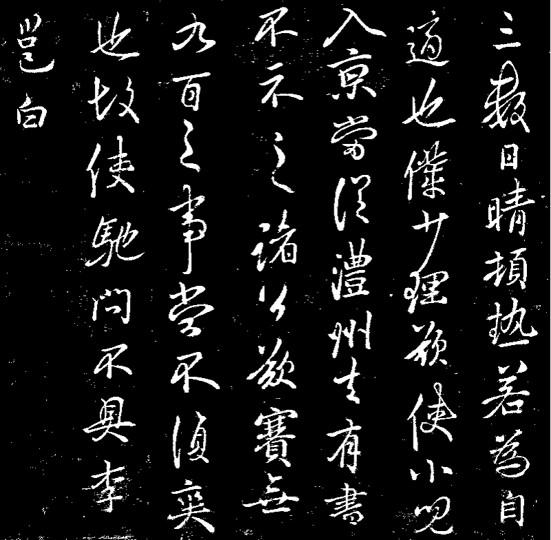 三數日晴頓热若為自
適也僕少理欲使小兒
入京當從澧州去有書
不示之諸公欲賽無
九百之事當不須爽
也故使馳問不具李
邕白